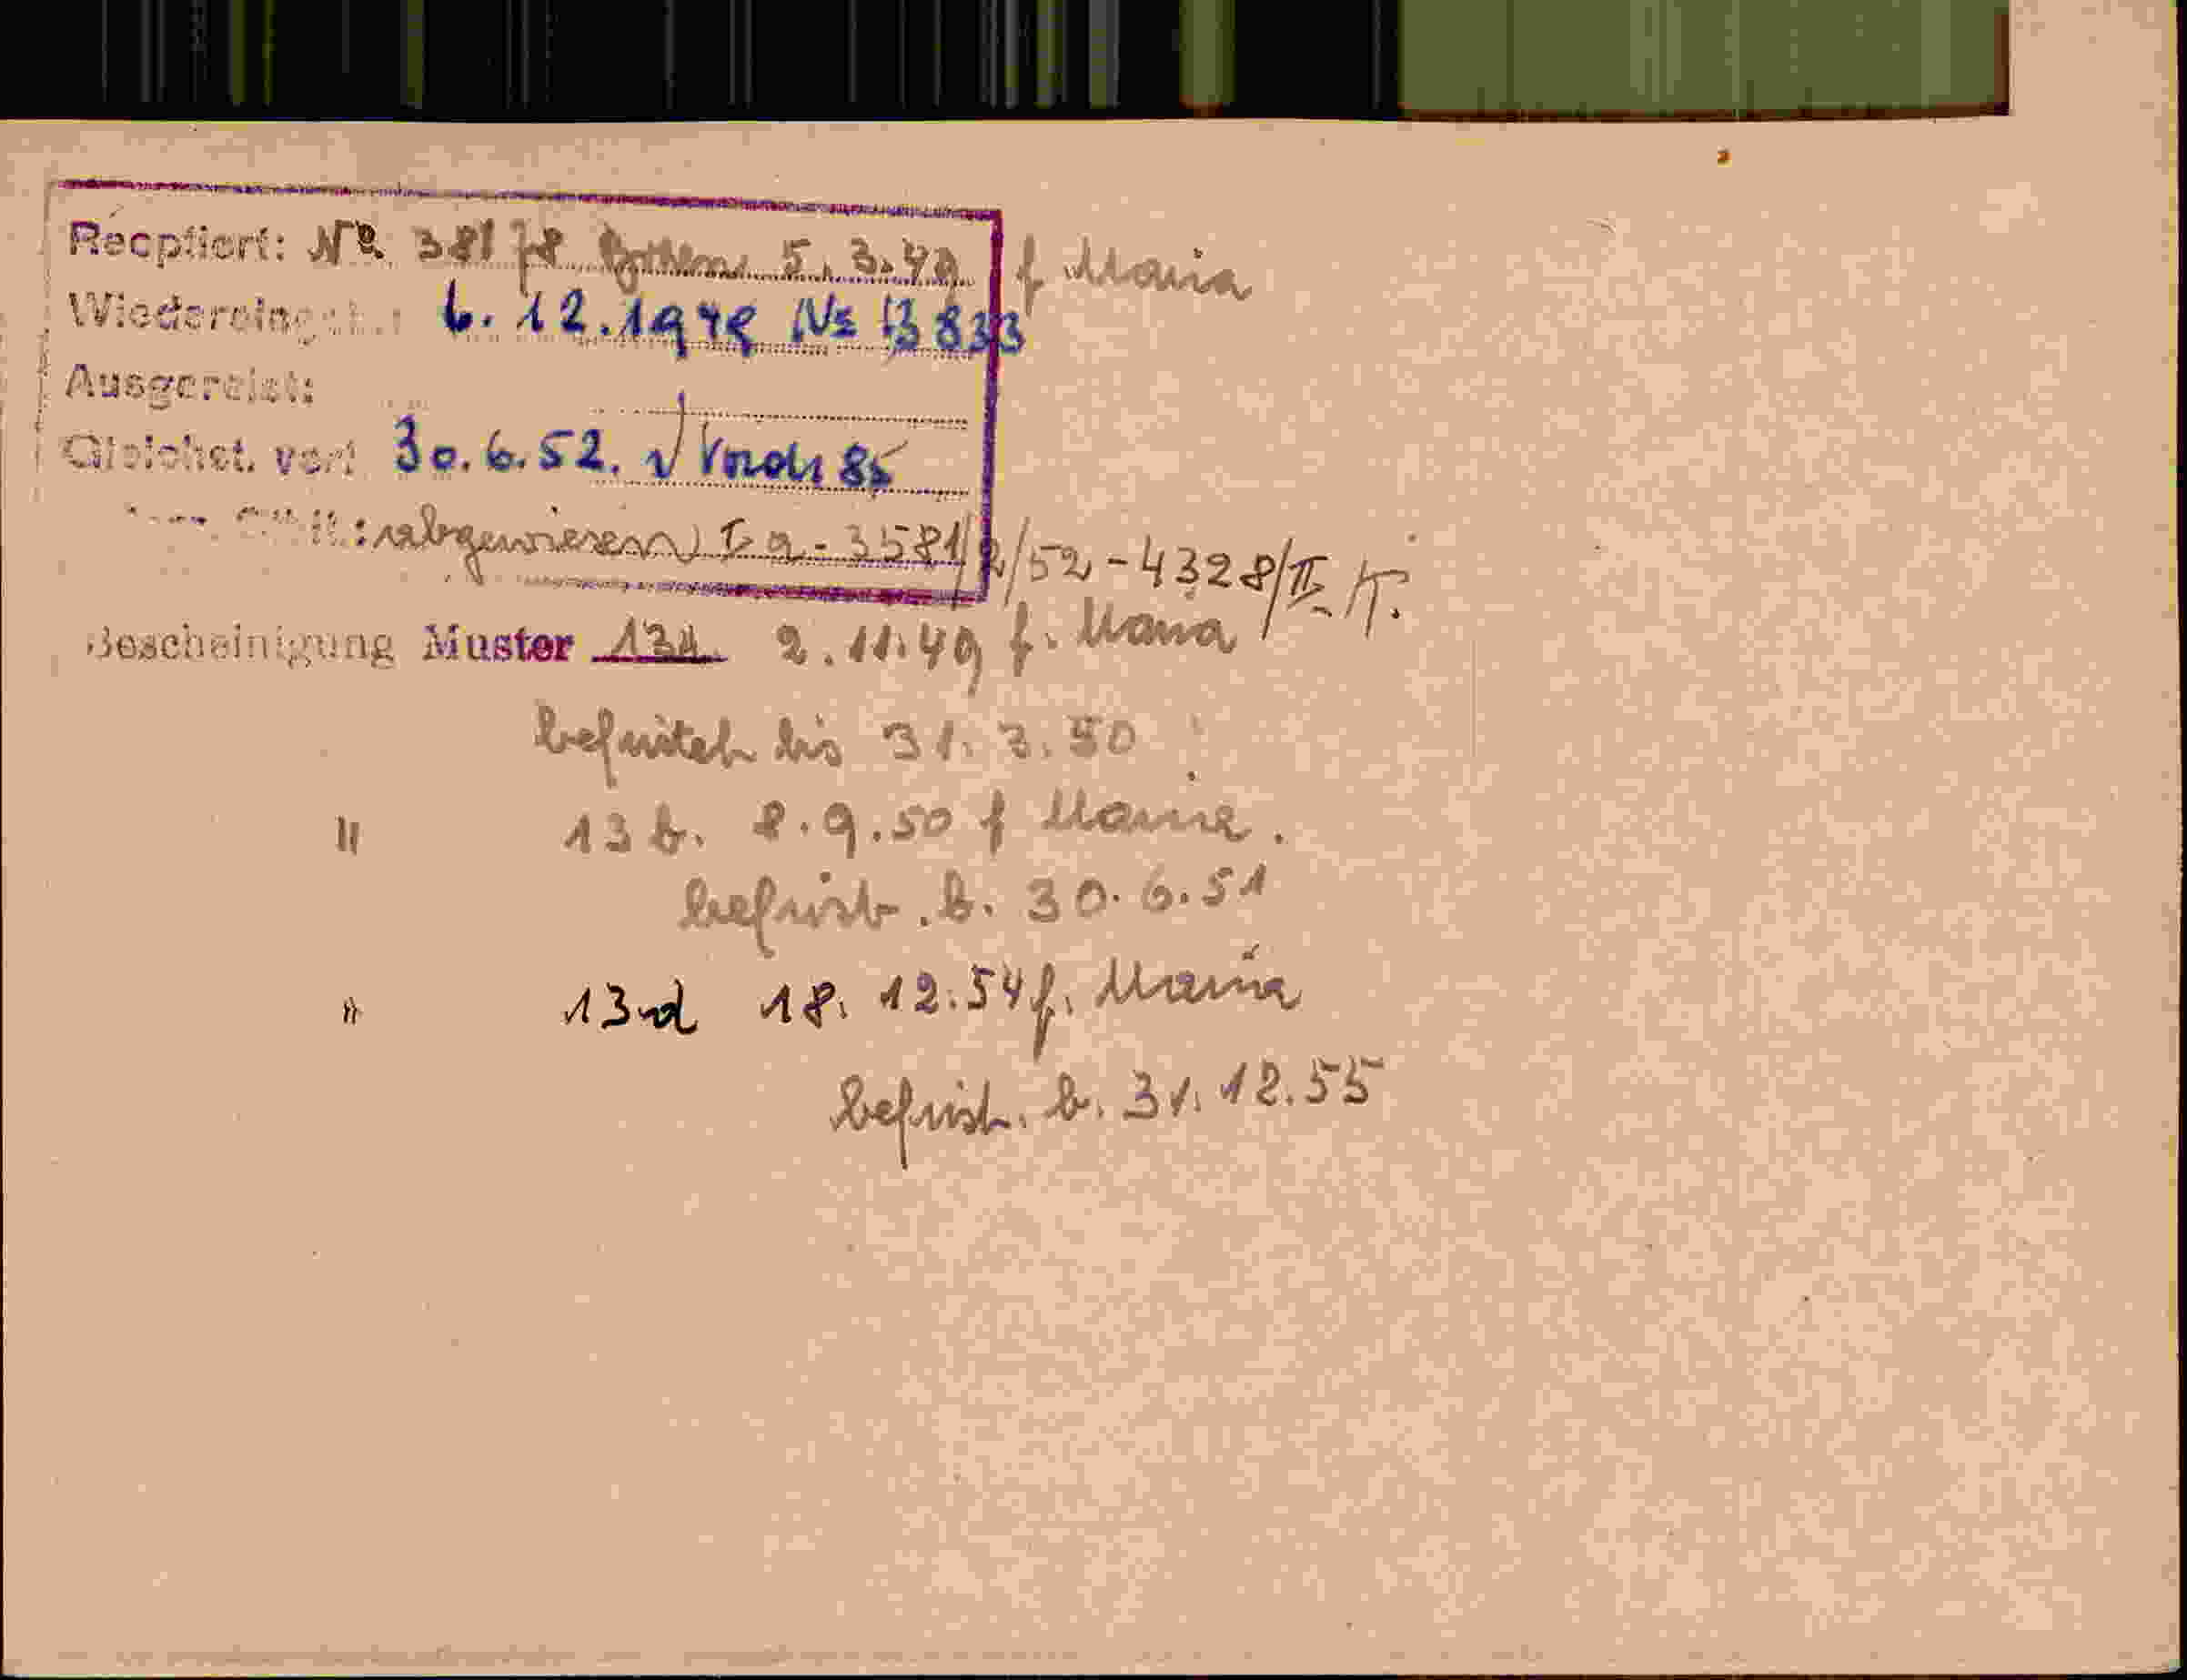 Recptiert: № 38178 Bozen 5.3.49 f Maria
Wiedereingeb.: 6.12.1948 № 13833
Ausgereist:
Gleichst. verl. 30.6.52. 85
abgewiesen I a - 3581/2/52 - 4328/II/T.
Bescheinigung Muster 13a 2.11.49 f. Maria
befristet bis 31.3.50
" 13 b. 8.9.50 f Maria.
befrist. b. 30.6.51
" 13 d 18.12.54 f. Maria
befrist. b. 31.12.55